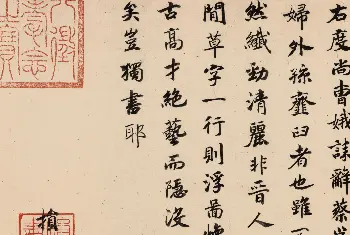 右度尚曹娥誄辭蔡
婦外孫虀臼者也雖
然纖勁清麗非晉人
間草字一行則浮圖懷
古高才絕藝而隱没
矣豈獨書耶